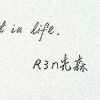 t in life.
R3n先森